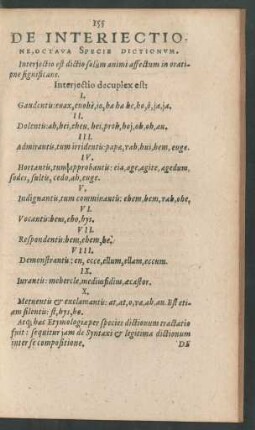 155
DE INTERIECTIO-
NE, OCTAVA SPECIE DICTIONUM.
Interjectio est dictio solùm animi affectum in orati-
one significans.
Interjectio decuplex est:
I.
Gaudentis: euax, evohè, io, ha ha he, ho, ja, ja.
II.
Dolentis: ah, hei, eheu, hei, proh, hoj, oh, oh, au.
III.
Admirantis, tum irridentis: papæ, vah, hui, hem, euge.
IV.
Hortantis, tum approbantis: eia, age, agite, agedum,
sodes, sultis, cedo, ah, euge.
V.
Indignantis, tum comminantis: ehem, hem, vah, ohe,
VI.
Vocantis: heus, eho, hys.
VII.
Respondentis: hem, ehem, he.
VIII.
Demonstrantis: en, ecce, ellum, ellam, eccum.
IX.
Iurantis: mehercle, mediusfidius, æcastor.
X.
Metuentis & exclamantis: at, at, o, va, ah, au. Est eti-
am silentii: st, hys, ho.
Atq; hæc Etymologia per species dictionum tractatio
fuit: sequitur jam de Syntaxi & legitima dictionum
inter se compositione.
DE